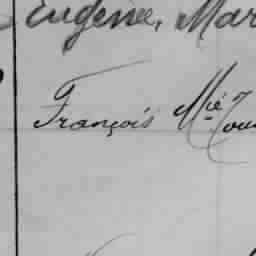 Eugène, Mar
François Mié